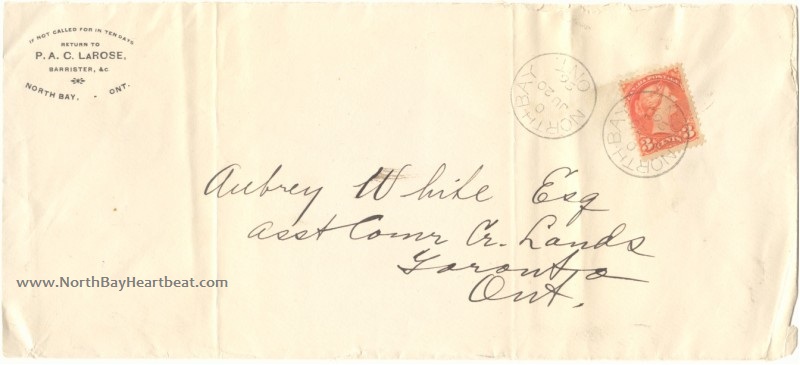 IF NOT CALLED FOR IN TEN DAYS
RETURN TO
P. A. C. LAROSE,
BARRISTER, &c
NORTH BAY, - ONT.
NORTH-BAY
ONT.
JU 20
NORTH-BAY
3 CENTS 3
Aubrey White Esq
asst Comr Cr. Lands
Toronto
Ont.
www.NorthBayHeartbeat.com